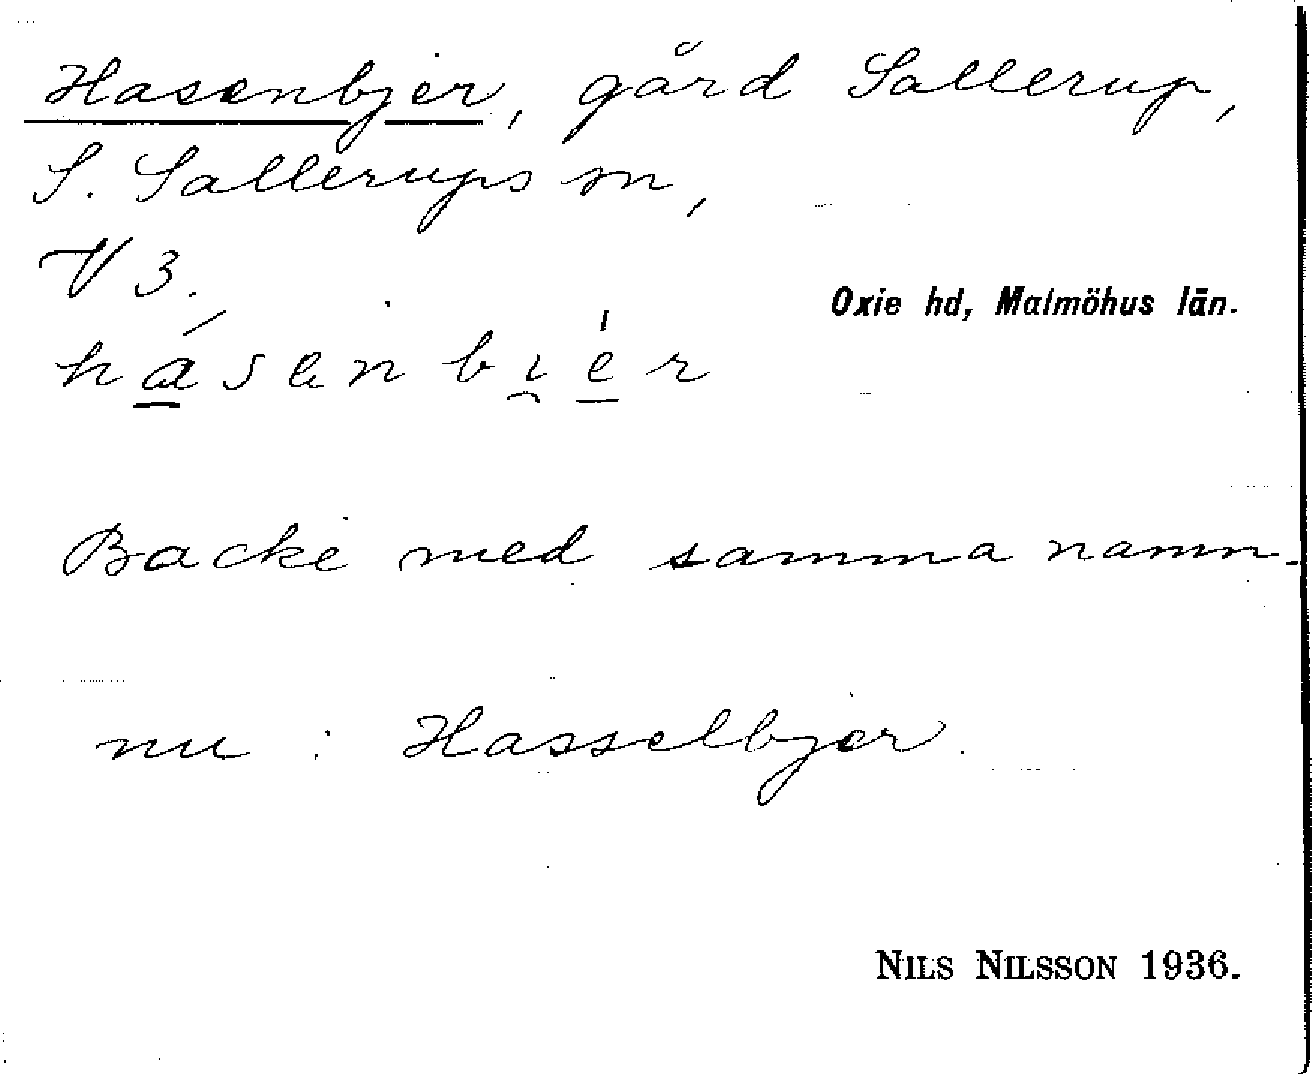 Hasenbjer, gård Sallerup,
S. Sallerups sn,
V 3.
Oxie hd, Malmöhus län.
hásenbi̯ér
Backe med samma namn.
nu : Hasselbjer.
NILS NILSSON 1936.